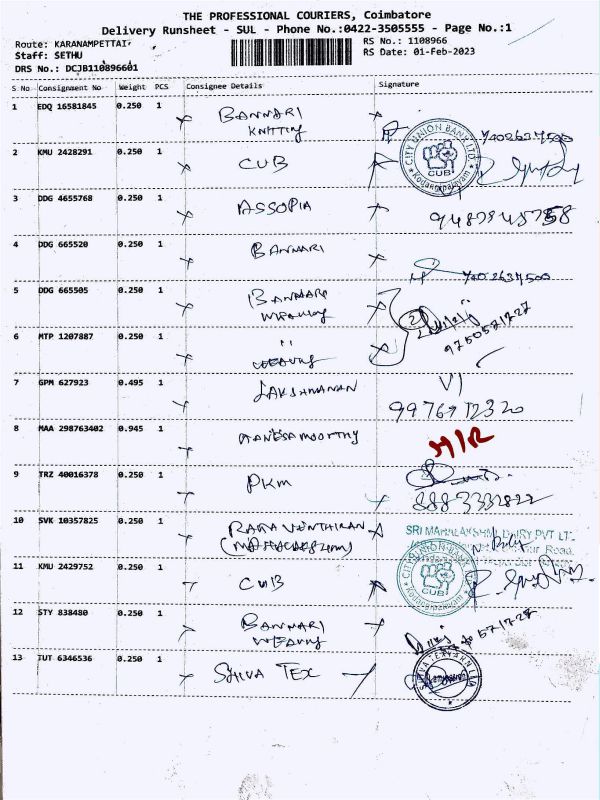 THE PROFESSIONAL COURIERS, Coimbatore
Delivery Runsheet - SUL - Phone No.:0422-3505555 - Page No.:1
Route: KARANAMPETTAI
RS No.: 1108966
Staff: SETHU
RS Date: 01-Feb-2023
DRS No.: DCJB110896601
S No Consignment No Weight PCS Consignee Details Signature
1 EDQ 16581845 0.250 1 BANNARI
KNITTING
7402637500
2 KMU 2428291 0.250 1 CUB
CITY UNION BANK LTD. CUB
3 DDG 4655768 0.250 1 ASSOPIA
4 DDG 665520 0.250 1 BANNARI
7402637500
5 DDG 665505 0.250 1 BANNARI
WEAVING
9750571727
6 MTP 1207887 0.250 1 "
WEAVING
7 GPM 627923 0.495 1 LAKSHMANAN
9976912320
8 MAA 298763402 0.945 1 GANESAMOORTHY
9 TRZ 40016378 0.250 1 PKM
8883332822
10 SVK 10357825 0.250 1
SRI MAHALAKSHMI DAIRY PVT LT
Road,
11 KMU 2429752 0.250 1 CUB
CITY UNION BANK CUB
12 STY 838480 0.250 1 BANNARI
WEAVING
571727
13 TUT 6346536 0.250 1 SHIVA TEX